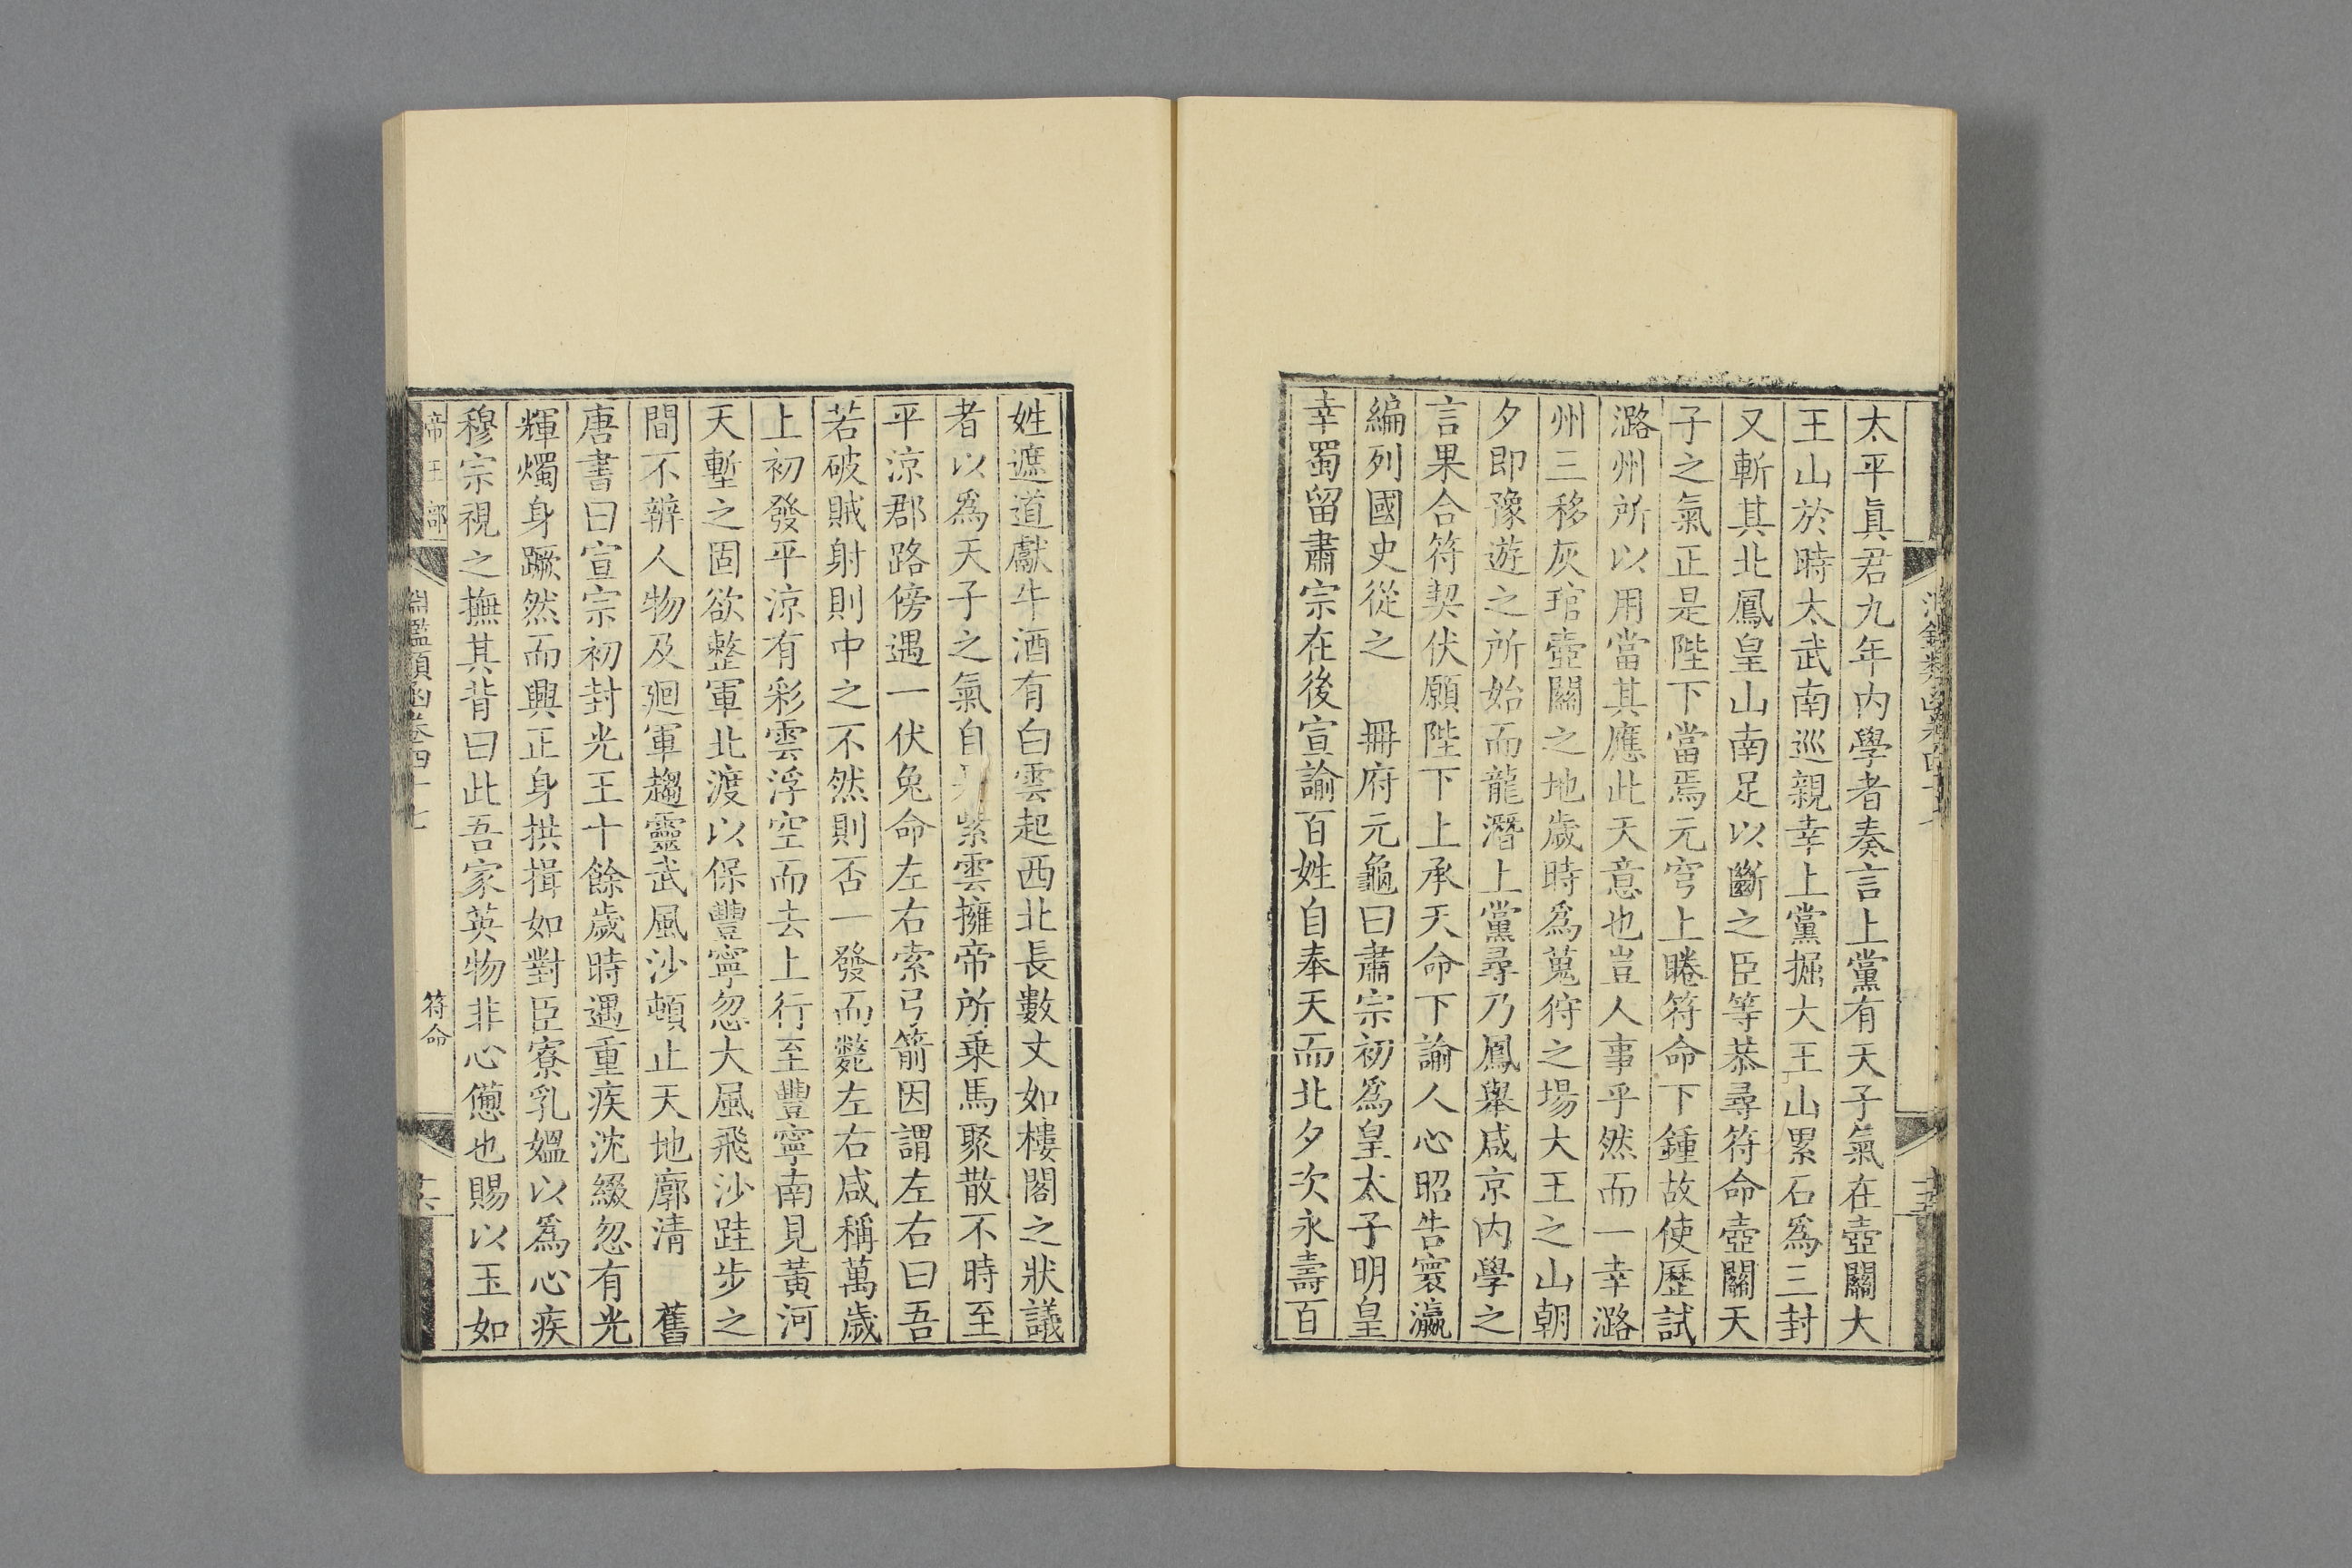 太平眞君九年內學者奏言上黨有天子氣在壺關大
王山於時太武南巡親幸上黨掘大王山累石爲三封
又斬其北鳳皇山南足以斷之臣等恭尋符命壺關天
子之氣正是陛下當焉元穹上睠符命下鍾故使歷試
潞州所以用當其應此天意也豈人事乎然而一幸潞
州三移灰琯壺關之地歲時爲蒐狩之場大王之山朝
夕即豫遊之所始而龍潛上黨尋乃鳳舉咸京內學之
言果合符契伏願陛下上承天命下諭人心昭告寰瀛
編列國史從之　冊府元龜曰肅宗初爲皇太子明皇
幸蜀留肅宗在後宣諭百姓自奉天而北夕次永壽百
姓遮道獻牛酒有白雲起西北長數丈如樓閣之狀議
者以爲天子之氣自紫雲擁帝所乗馬聚散不時至
平涼郡路傍遇一伏兔命左右索弓箭因謂左右曰吾
若破賊射則中之不然則否一發而斃左右咸稱萬歲
上初發平涼有彩雲浮空而去上行至豐寧南見黃河
天塹之固欲整軍北渡以保豐寧忽大風飛沙跬步之
間不辨人物及廻軍趨靈武風沙頓止天地廓清　舊
唐書曰宣宗初封光王十餘歲時遇重疾沈綴忽有光
輝燭身蹶然而興正身拱揖如對臣寮乳媼以爲心疾
穆宗視之撫其背曰此吾家英物非心憊也賜以玉如
帝王部
淵鑑類函卷四十七
符命